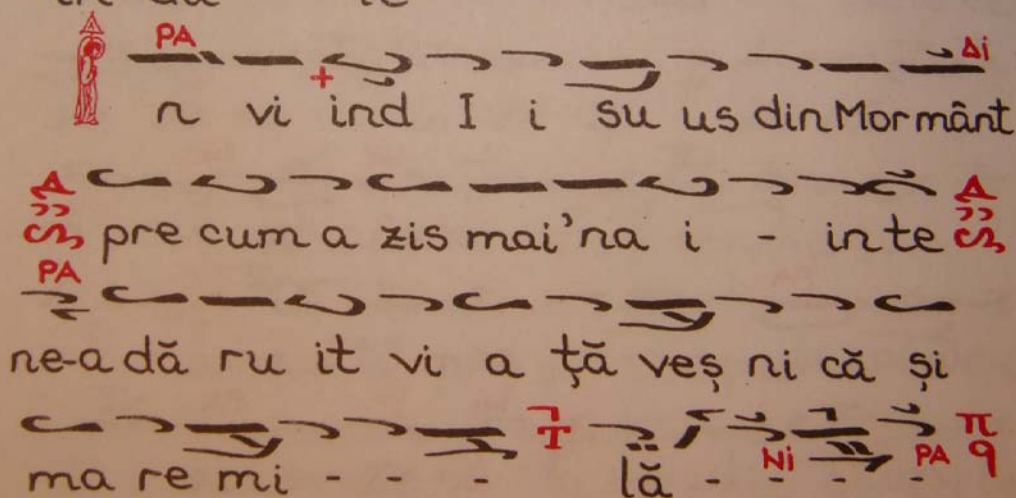 PA Δi
n vi ind I i su us din Mormânt
pre cum a zis mai'na i - in te
PA
ne-a dă ru it vi a ţă veş ni că şi
Ni PA π q
ma re mi - - - lă - - - -